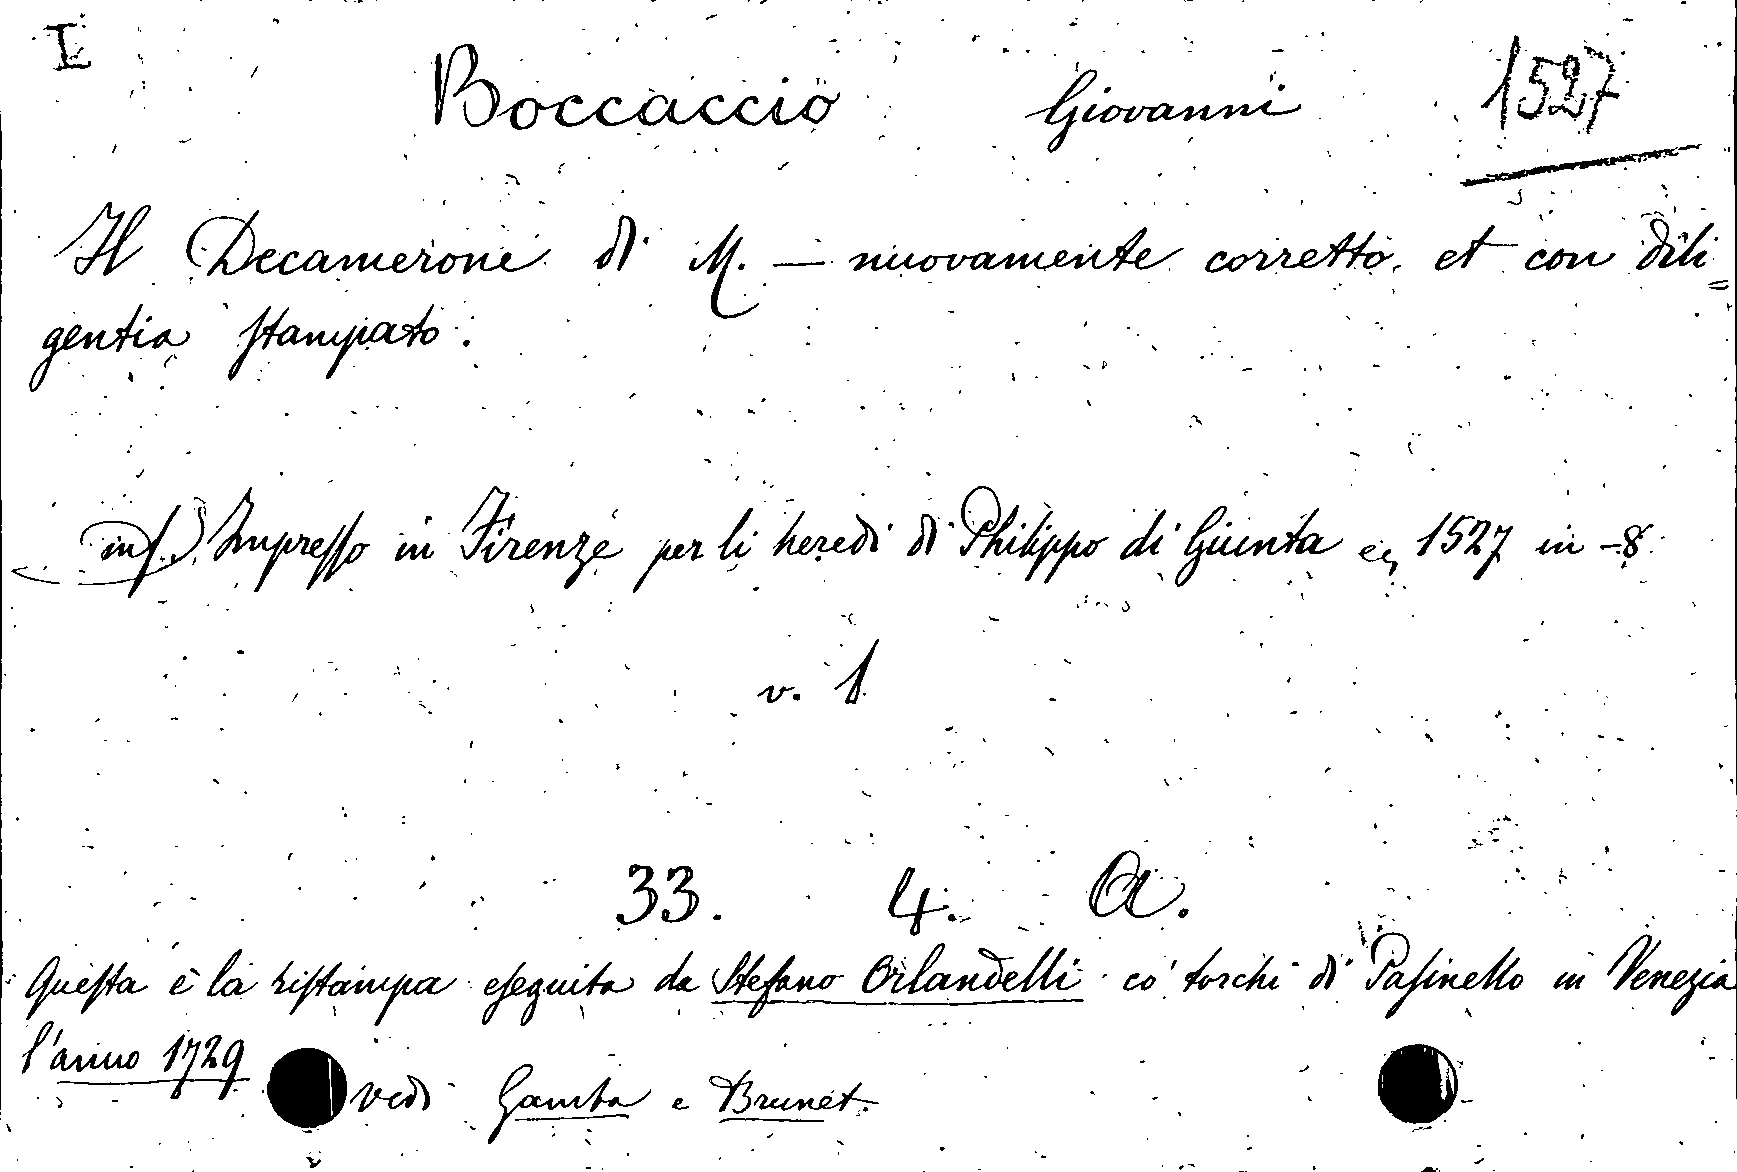 I
Boccaccio Giovanni 1527
Il Decamerone di M. — nuovamente corretto et con dili=
gentia stampato.
(inf.) Impresso in Firenze per li heredi di Philippo di Giunta 1527 in -8
v. 1
33. 4. A.
Questa è la ristampa eseguita da Stefano Orlandelli co' torchi di Pasinello in Venezia
l'anno 1729 vedi Gamba e Brunet.